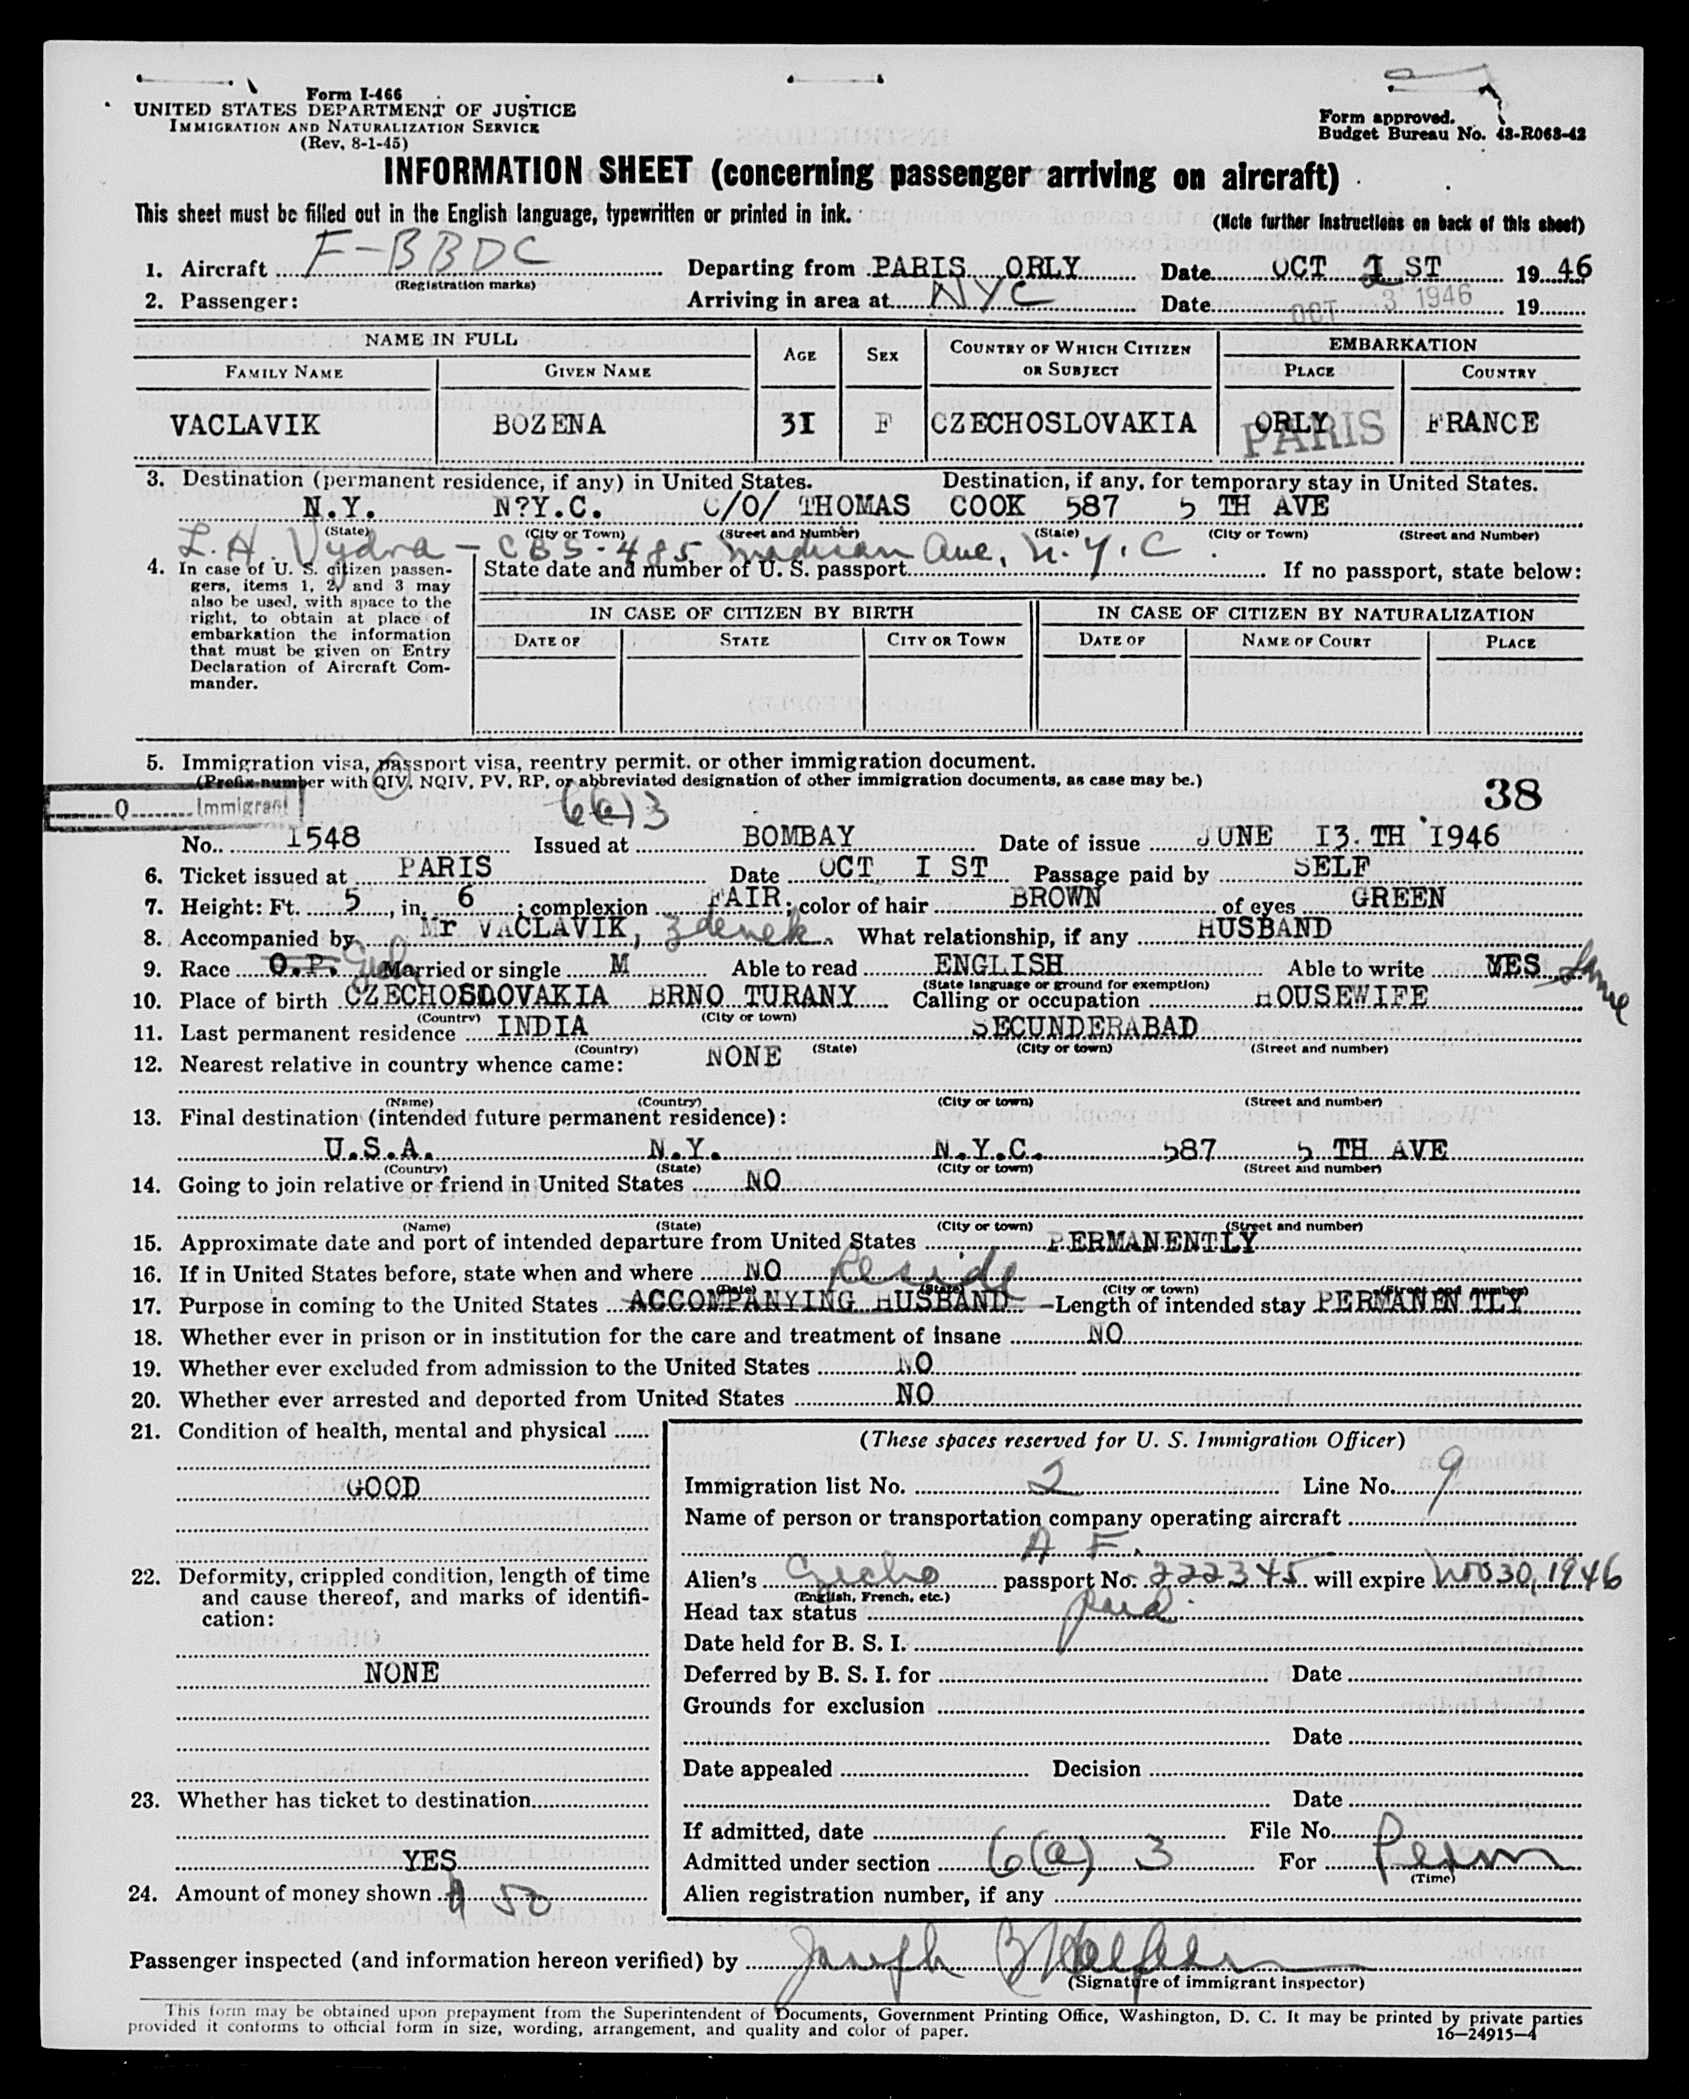 Form I-466
UNITED STATES DEPARTMENT OF JUSTICE
IMMIGRATION AND NATURALIZATION SERVICE
(Rev. 8-1-45)
Form approved.
Budget Bureau No. 43-R068-42
INFORMATION SHEET (concerning passenger arriving on aircraft)
This sheet must be filled out in the English language, typewritten or printed in ink.
(Note further instructions on back of this sheet)
1. Aircraft F-BBDC Departing from PARIS ORLY Date OCT 1 ST 19 46
(Registration marks)
2. Passenger: Arriving in area at NYC Date OCT 3 1946 19
NAME IN FULL AGE SEX COUNTRY OF WHICH CITIZEN OR SUBJECT EMBARKATION
FAMILY NAME GIVEN NAME PLACE COUNTRY
VACLAVIK BOZENA 3I F CZECHOSLOVAKIA ORLY PARIS FRANCE
3. Destination (permanent residence, if any) in United States. Destination, if any, for temporary stay in United States.
N.Y. N?Y.C. C/O/ THOMAS COOK 587 5 TH AVE
(State) (City or Town) (Street and Number) (State) (City or Town) (Street and Number)
L.H. Vydra - CBS - 485 Madison Ave, N.Y.C.
4. In case of U. S. citizen passen-
gers, items 1, 2, and 3 may
also be used, with space to the
right, to obtain at place of
embarkation the information
that must be given on Entry
Declaration of Aircraft Com-
mander.
State date and number of U. S. passport If no passport, state below:
IN CASE OF CITIZEN BY BIRTH IN CASE OF CITIZEN BY NATURALIZATION
DATE OF STATE CITY OR TOWN DATE OF NAME OF COURT PLACE
5. Immigration visa, passport visa, reentry permit, or other immigration document.
(Prefix number with QIV, NQIV, PV, RP, or abbreviated designation of other immigration documents, as case may be.)
38
Q Immigrant
6(a)3
No. 1548 Issued at BOMBAY Date of issue JUNE I3. TH 1946
6. Ticket issued at PARIS Date OCT I ST Passage paid by SELF
7. Height: Ft. 5, in. 6; complexion FAIR; color of hair BROWN of eyes GREEN
8. Accompanied by Mr VACLAVIK, Zdenek What relationship, if any HUSBAND
9. Race O.P. Married or single M Able to read ENGLISH Able to write YES Same
(State language or ground for exemption)
10. Place of birth CZECHOSLOVAKIA BRNO TURANY Calling or occupation HOUSEWIFE
(Country) (City or town)
11. Last permanent residence INDIA SECUNDERABAD
(Country) (State) (City or town) (Street and number)
12. Nearest relative in country whence came: NONE
(Name) (Country) (City or town) (Street and number)
13. Final destination (intended future permanent residence):
U.S.A. N.Y. N.Y.C. 587 5 TH AVE
(Country) (State) (City or town) (Street and number)
14. Going to join relative or friend in United States NO
(Name) (State) (City or town) (Street and number)
15. Approximate date and port of intended departure from United States PERMANENTLY
16. If in United States before, state when and where NO
(Date) (State) (City or town) (Street and number)
Reside
17. Purpose in coming to the United States ACCOMPANYING HUSBAND Length of intended stay PERMANEN TLY
18. Whether ever in prison or in institution for the care and treatment of insane NO
19. Whether ever excluded from admission to the United States NO
20. Whether ever arrested and deported from United States NO
21. Condition of health, mental and physical
GOOD
22. Deformity, crippled condition, length of time
and cause thereof, and marks of identifi-
cation:
NONE
23. Whether has ticket to destination
YES
24. Amount of money shown $ 50
(These spaces reserved for U. S. Immigration Officer)
Immigration list No. 2 Line No. 9
Name of person or transportation company operating aircraft
A F.
Alien's Czecho passport No. 222345 will expire Nov 30, 1946
(English, French, etc.)
Head tax status paid
Date held for B. S. I.
Deferred by B. S. I. for Date
Grounds for exclusion
Date
Date appealed Decision
Date
If admitted, date File No.
Admitted under section 6(a) 3 For Perm
(Time)
Alien registration number, if any
Passenger inspected (and information hereon verified) by Joseph B
(Signature of immigrant inspector)
This form may be obtained upon prepayment from the Superintendent of Documents, Government Printing Office, Washington, D. C. It may be printed by private parties
provided it conforms to official form in size, wording, arrangement, and quality and color of paper.
16—24915-4